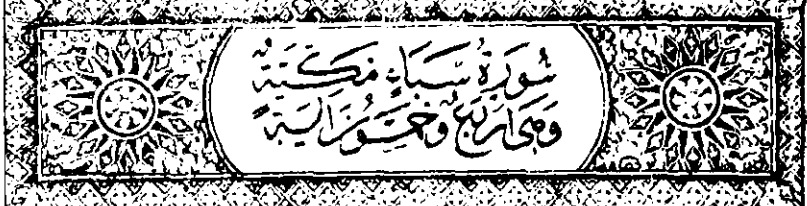 سُورَةُ سَبَإٍ مَكِّيَّةٌ
وَهِىَ أَرْبَعٌ وَخَمْسُونَ اٰيَةً